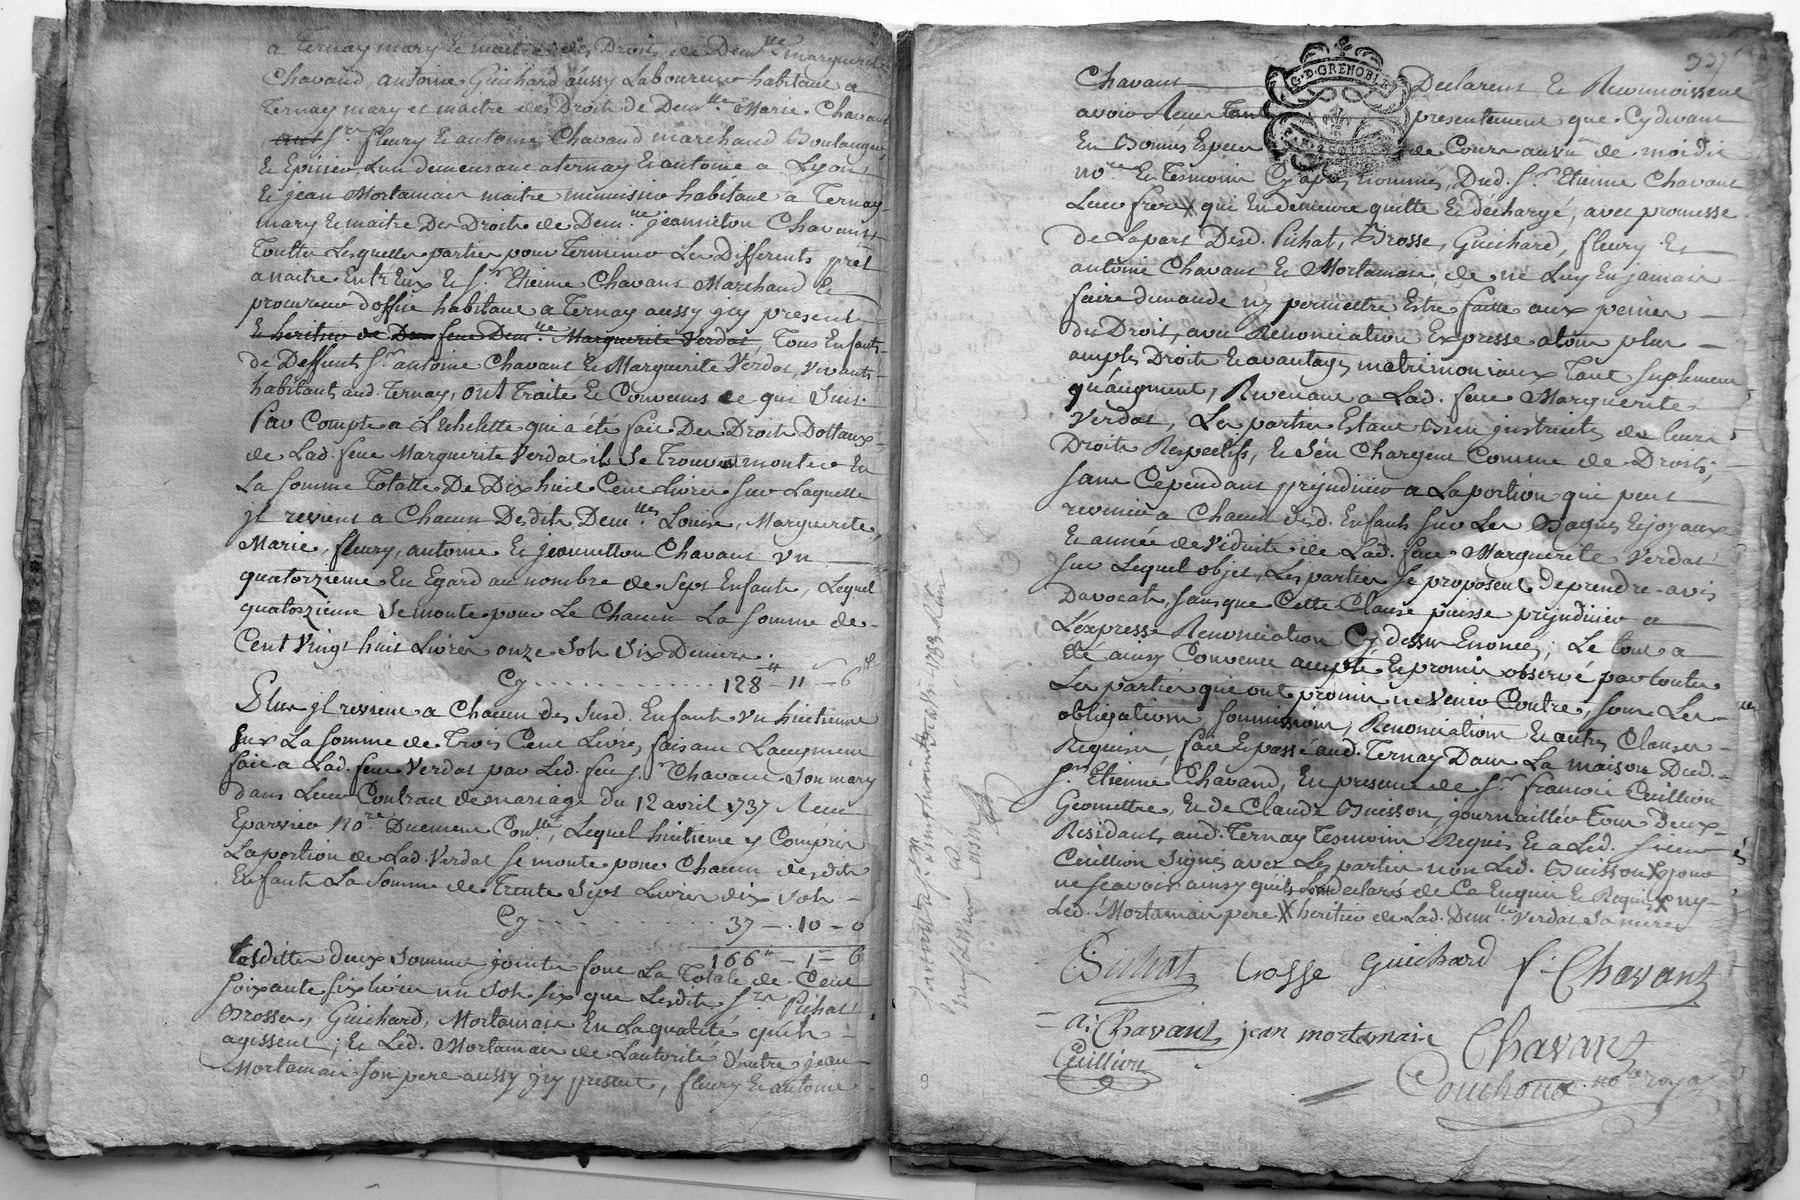 a Ternay mary et maitre des Droits de Dem.lle marguerite
Chavand, antoine Guichard aussy Laboureur habitant a
Ternay mary et maitre des Droits de Dem.lle Marie Chavant
Srs fleury et antoine Chavand marchand Boulanger
et Epicier, Lun demeurant a ternay et antoine a Lyon
Et jean Mortamais maitre menuisier habitant à Ternay
mary et maitre Des Droits de Dem.lle jeanneton Chavant
Touttes Lesquelles parties pour Terminer Les Differents pret
a naitre Entr'Eux Et Sr. Etienne Chavant Marchand et
procureur d'office habitant a Ternay aussy icy present
et heritier de Dem feue Dem.lle Marguerite Verdat Tous Enfants
de Deffunts Sr. antoine Chavant Et Marguerite Verdat, vivants
habitants aud. Ternay, ont Traité Et Convenus ce qui Suit.
Par Compte a L'echelette qui a été fait Des Droits Dottaux
de Lad. feue Marguerite Verdat ils Se Trouvent monter En
La Somme Totalle De Dix huit Cent Livres Sur Laquelle
il revient a Chacun Desdits Dem.lles Louise, Marguerite,
Marie, fleury, antoine Et jeannetton Chavant vn
quatorzieme En Egard au nombre de Sept Enfants, Lequel
quatorzieme Se monte pour Le Chacun La Somme de
Cent Vingt huit Livres onze Sols Six Deniers.
Cy . . . . . . . . . . . . 128 ₶ - 11 s - 6 d
Plus il revient a Chacun des Susd. Enfants vn huitieme
Sur La Somme de Trois Cent Livres faisant Laugment
fait a Lad. feue Verdat par Led. feu Sr. Chavant Son mary
dans Leur Contrat de mariage du 12 avril 1737 Reçu
Eparvier No.re Duement Con.llé, Lequel huitieme y Compris
La portion de Lad. Verdat Se monte pour Chacun desdits
Enfants La Somme de Trente Sept Livres dix Sols
Cy . . . . . . . . . . . . 37 - 10 - 0
166 ₶ - 1 - 6
Lesdittes deux Sommes jointes font La Totale de Cent
Soixante Six livres un Sol six que Lesdits Srs Pichat
Brosse, Guichard, Mortamais En La qualité qu'ils
agissent; et Led. Mortamais de L'autorité d'autre jean
Mortamais Son pere aussy icy present, fleury Et antoine
337
G. D. GRENOBLE
Chavant Declarent Et Reconnoissent
avoir Reçu Tant presentement que Cydevant
En Bonnes Especes de Cours au vu de moidit
no.re Et Tesmoins Cy apres nommes, Dud. Sr. Etienne Chavant
Leur frere X qui En demeure quitte Et déchargé, avec promesse
de La part Desd. Pichat, Brosse, Guichard, fleury Et
antoine Chavant Et Mortamais, de ne Luy En jamais
faire demande ny permettre Estre faitte aux peines
du Droit, avec Renonciation Expresse a tous plus
amples Droits Et avantages matrimoniaux Tant Suplement
qu'augment, Revenant a Lad. feue Marguerite
Verdat, Les parties Estant Bien instruites de leurs
Droits Respectifs, Et S'en Chargent Comme de Droits;
Sans Cependant prejudicier a La portion qui peut
revenir a Chacun desd. Enfants Sur Les Bagues Et joyaux
Et année de viduité de Lad. feue Marguerite Verdat
Sur Lequel objet, Les parties Se proposent de prendre avis
Davocat, Sans que Cette Clause puisse prejudicier a
L'expresse Renonciation Cy dessus Enoncée; Le tout a
été ainsy Convenu accepté Et promis observé par toutes
Les parties qui ont promis ne Venir Contre, Sous Les
obligations, Soumissions, Renonciations Et autres Clauses
Requises, fait Et passé aud. Ternay Dans La maison Dud.
Sr. Etienne Chavand, En presence de Sr. francois Cuillion
Geometre, Et de Claude Buisson, journaillier Tous deux
Residants aud. Ternay Tesmoins Requis Et a Led. Sieur
Cuillion Signés avec Les parties non Led. Buisson X pour
ne Scavoir ainsy quils ont declarés de Ce Enquis Et Requis X ny
Led. Mortamais pere X heritier de Lad. Dem.lle Verdat Sa mere
Pichat brosse Guichard f. Chavant
= a: Chavant jean mortamais Chavant
Cuillion Couchoud no.re royal